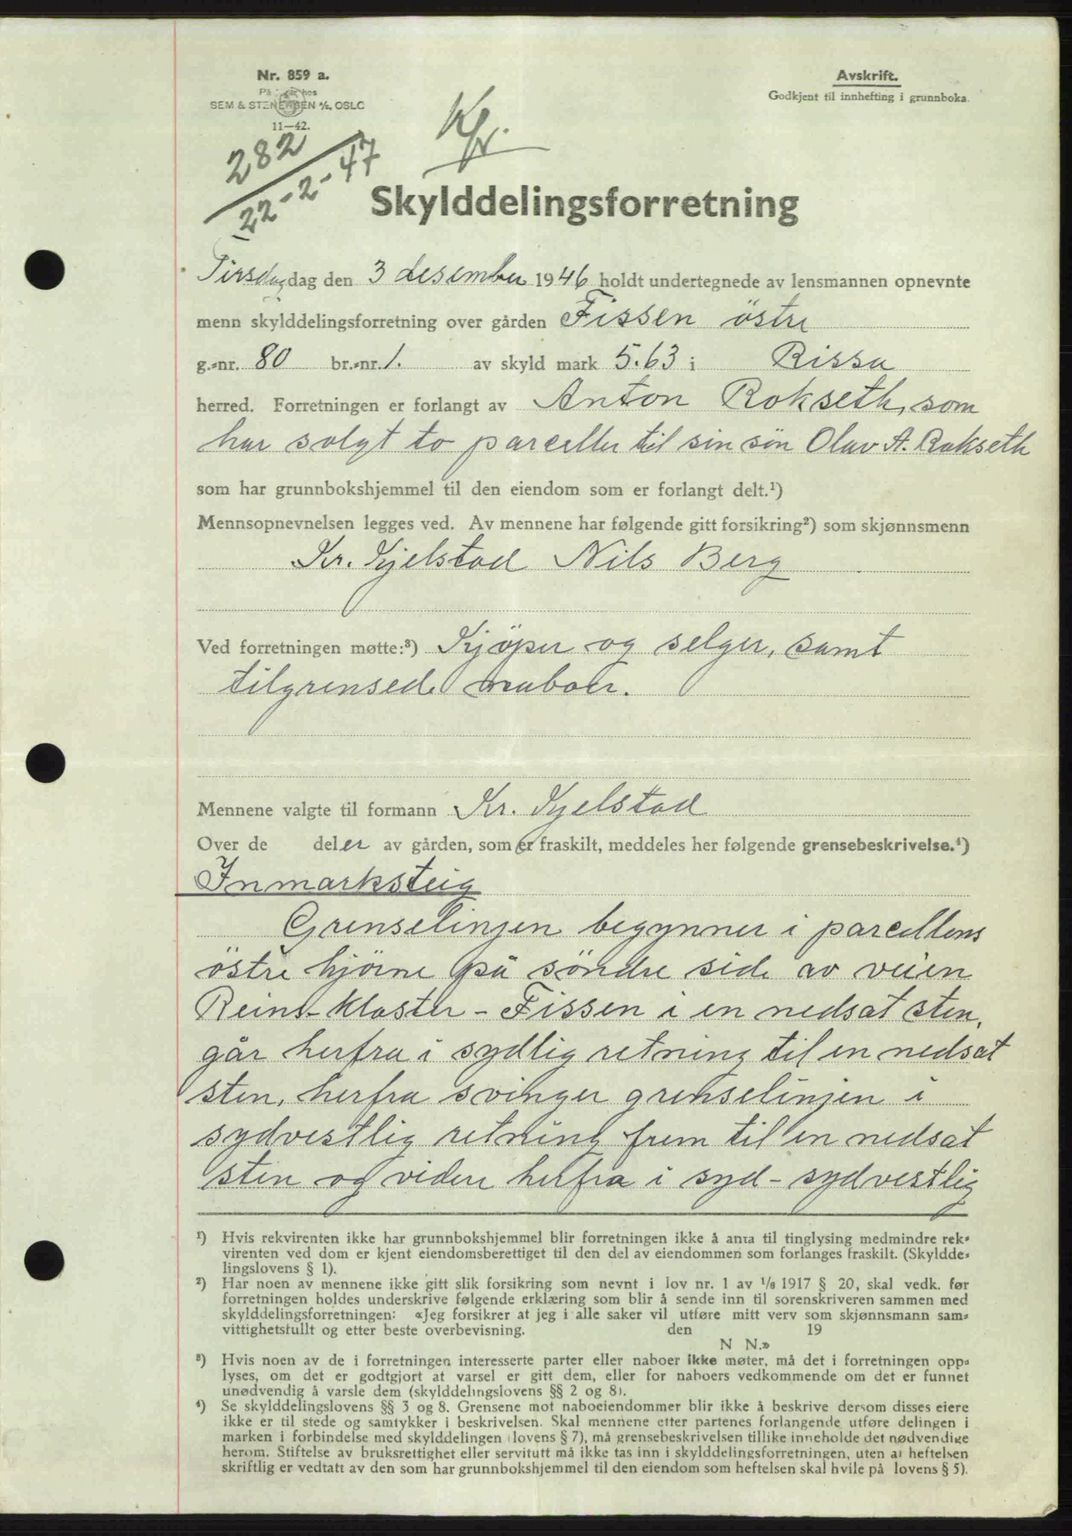 Nr. 859 a.
På lager hos
SEM & STENERSEN A/S, OSLO
11—42.
Avskrift.
Godkjent til innhefting i grunnboka.
Kfr.
282
22-2-47
Skylddelingsforretning
Tirsdag dag den 3 desember 1946 holdt undertegnede av lensmannen opnevnte
menn skylddelingsforretning over gården Fissen östre
g.-nr. 80 br.-nr. 1. av skyld mark 5.63 i Rissa
herred. Forretningen er forlangt av Anton Rokseth, som
har solgt to parceller til sin sön Olav A. Rokseth
som har grunnbokshjemmel til den eiendom som er forlangt delt.¹)
Mennsopnevnelsen legges ved. Av mennene har følgende gitt forsikring²) som skjønnsmenn
Kr. Kjelstad Nils Berg
Ved forretningen møtte:³) Kjöper og selger, samt
tilgrensede naboer.
Mennene valgte til formann Kr. Kjelstad
Over de deler av gården, som er fraskilt, meddeles her følgende grensebeskrivelse.⁴)
Inmarksteig
Grenselinjen begynner i parcellens
östre hjörne på söndre side av veien
Reins-kloster - Fissen i en nedsat sten,
går herfra i sydlig retning til en nedsat
sten, herfra svinger grenselinjen i
sydvestlig retning frem til en nedsat
sten og videre herfra i syd-sydvestlig
¹) Hvis rekvirenten ikke har grunnbokshjemmel blir forretningen ikke å anta til tinglysing medmindre rek-
virenten ved dom er kjent eiendomsberettiget til den del av eiendommen som forlanges fraskilt. (Skyldde-
lingslovens § 1).
²) Har noen av mennene ikke gitt slik forsikring som nevnt i lov nr. 1 av 1/8 1917 § 20, skal vedk. før
forretningen holdes underskrive følgende erklæring som blir å sende inn til sorenskriveren sammen med
skylddelingsforretningen: «Jeg forsikrer at jeg i alle saker vil utføre mitt verv som skjønnsmann sam-
vittighetsfullt og etter beste overbevisning. den 19
N N.»
³) Hvis noen av de i forretningen interesserte parter eller naboer ikke møter, må det i forretningen opp-
lyses, om det er godtgjort at varsel er gitt dem, eller for naboers vedkommende om det er funnet
unødvendig å varsle dem (skylddelingslovens §§ 2 og 8).
⁴) Se skylddelingslovens §§ 3 og 8. Grensene mot naboeiendommer blir ikke å beskrive dersom disses eiere
ikke er til stede og samtykker i beskrivelsen. Skal mennene etter partenes forlangende utføre delingen i
marken i forbindelse med skylddelingen (lovens § 7), må grensebeskrivelsen tillike inneholde det nødvendige
herom. Stiftelse av bruksrettighet eller servitutt må ikke tas inn i skylddelingsforretningen, uten at heftelsen
skriftlig er vedtatt av den som har grunnbokshjemmel til den eiendom som heftelsen skal hvile på (lovens § 5).